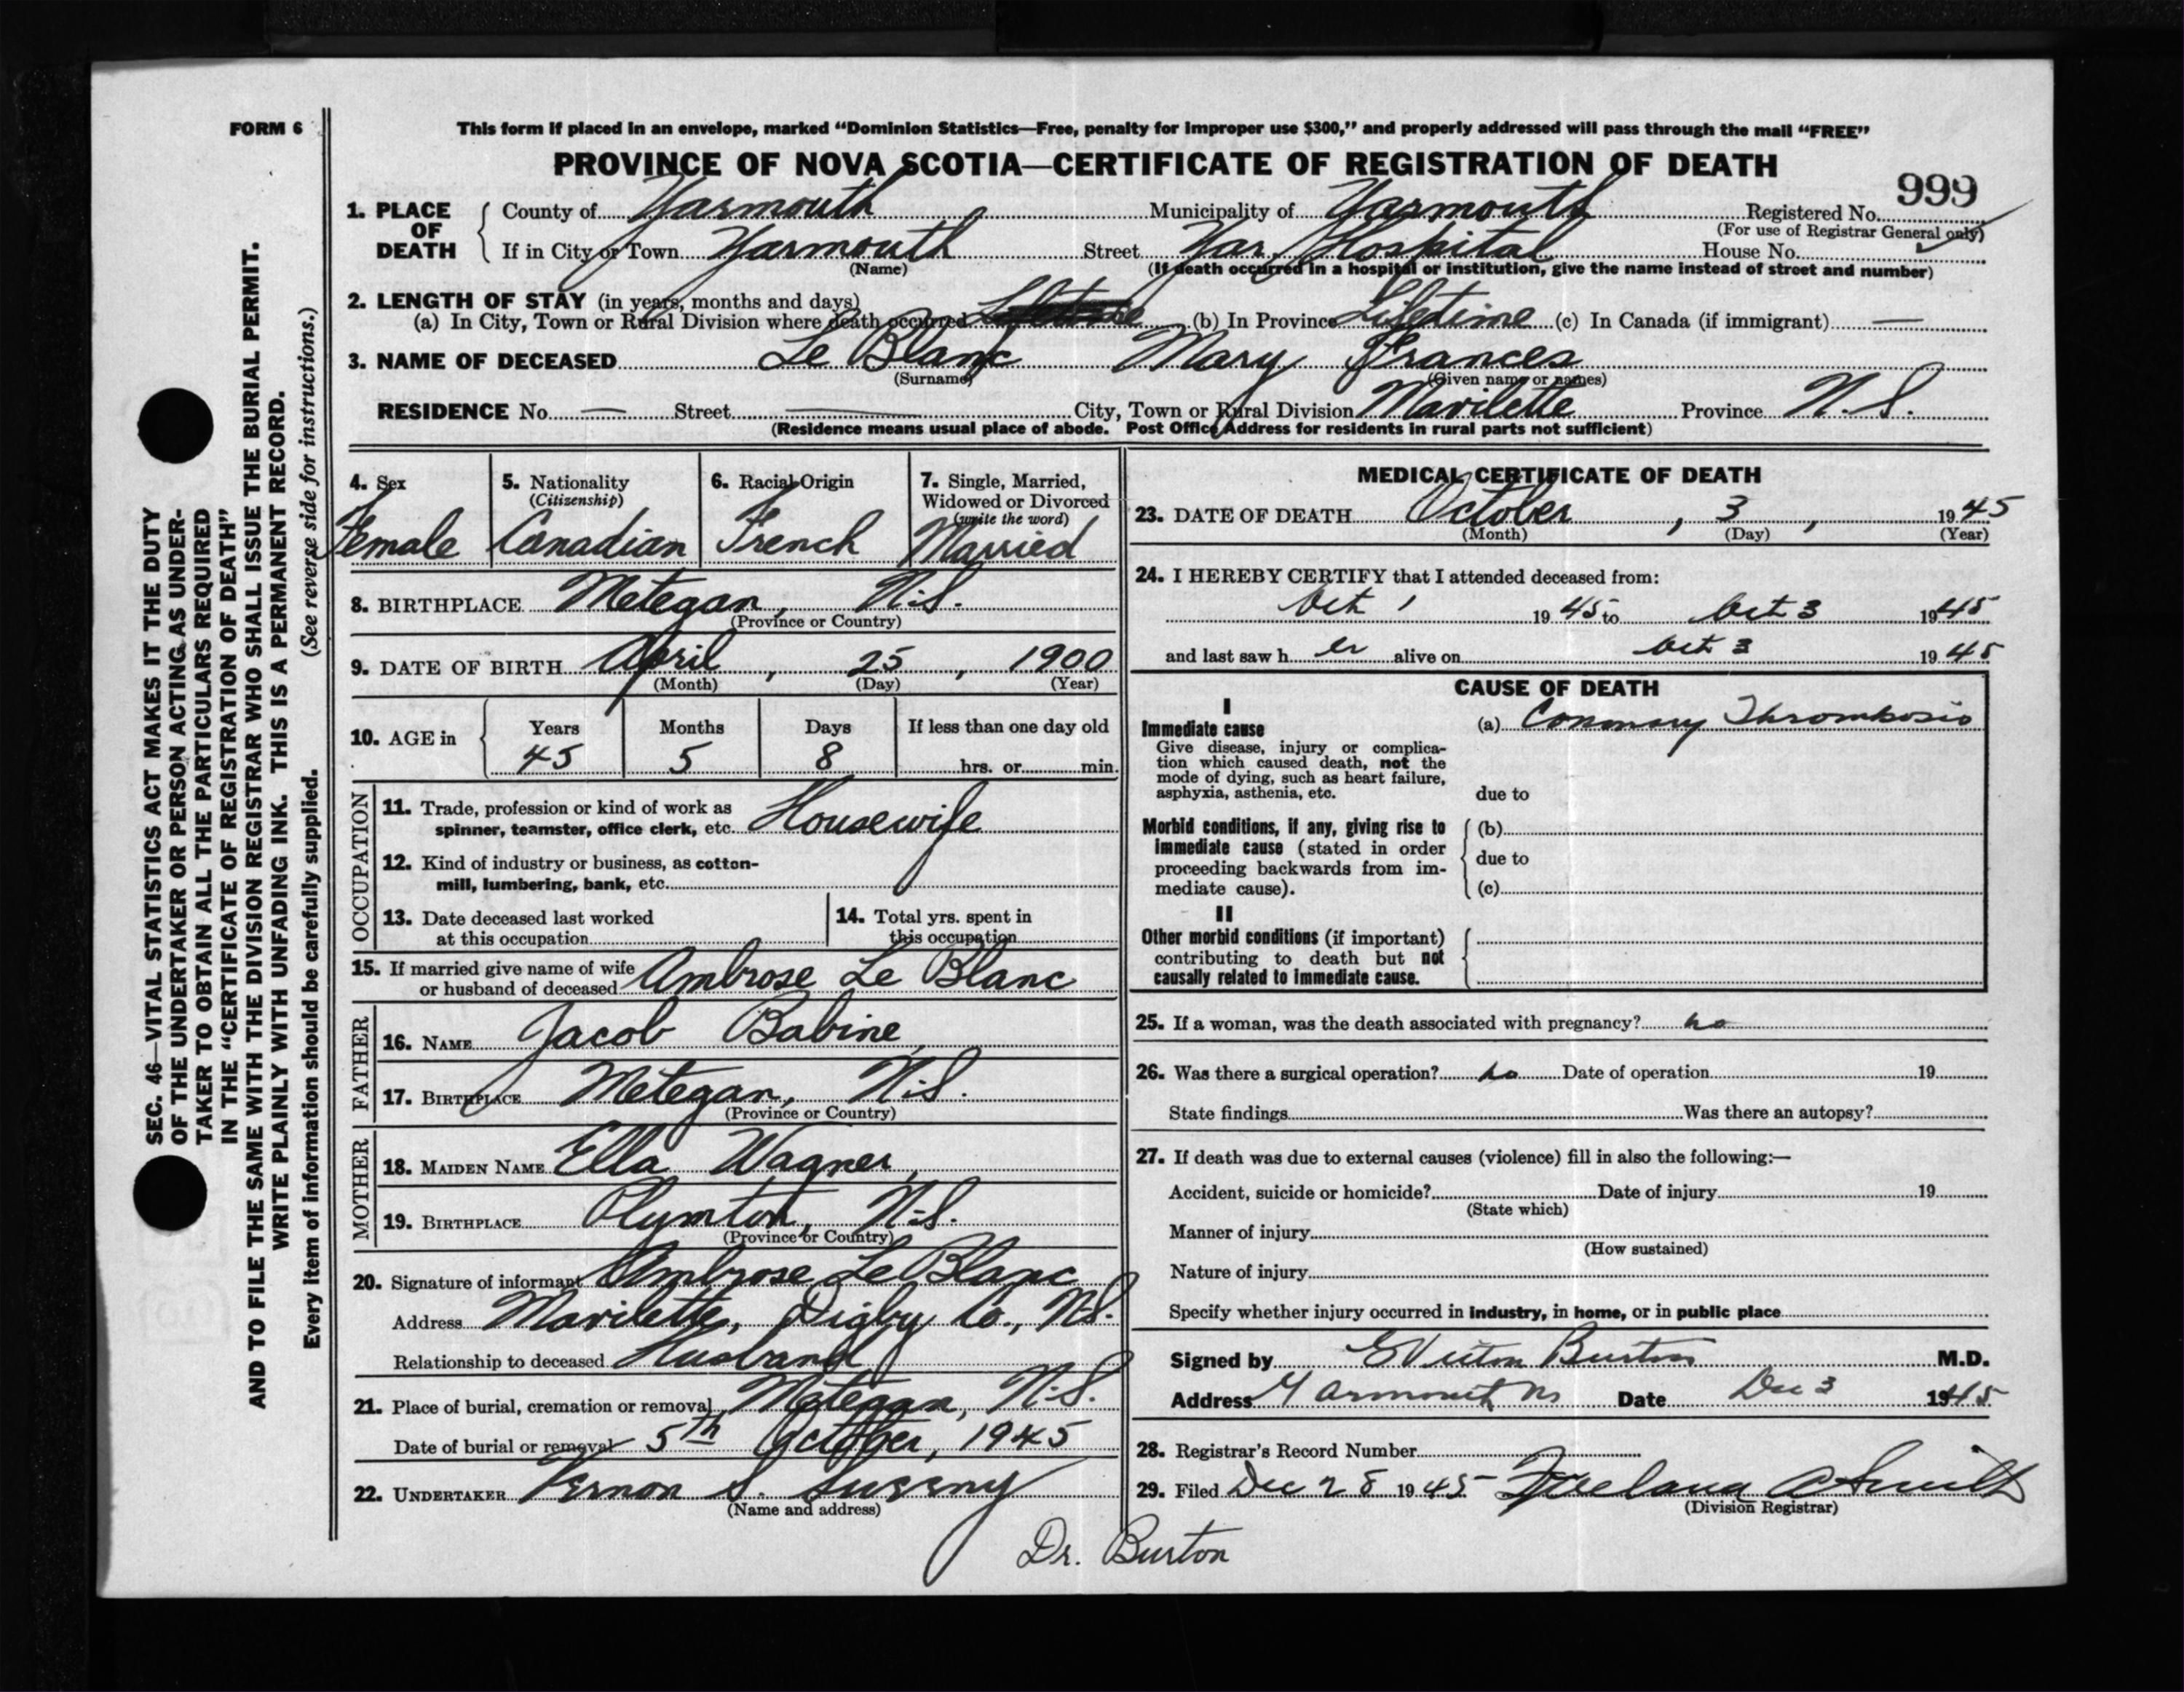 FORM 6
This form if placed in an envelope, marked "Dominion Statistics—Free, penalty for improper use $300," and properly addressed will pass through the mail "FREE"
PROVINCE OF NOVA SCOTIA—CERTIFICATE OF REGISTRATION OF DEATH
999
1. PLACE OF DEATH County of Yarmouth Municipality of Yarmouth Registered No.
(For use of Registrar General only)
If in City or Town Yarmouth Street Yar. Hospital House No.
(Name) (If death occurred in a hospital or institution, give the name instead of street and number)
2. LENGTH OF STAY (in years, months and days)
(a) In City, Town or Rural Division where death occurred (b) In Province Lifetime (c) In Canada (if immigrant) —
3. NAME OF DECEASED Le Blanc Mary Frances
(Surname) (Given name or names)
RESIDENCE No. — Street — City, Town or Rural Division Mavilette Province N.S.
(Residence means usual place of abode. Post Office Address for residents in rural parts not sufficient)
4. Sex 5. Nationality (Citizenship) 6. Racial Origin 7. Single, Married, Widowed or Divorced (write the word)
Female Canadian French Married
8. BIRTHPLACE Metegan, N.S.
(Province or Country)
9. DATE OF BIRTH April, 25, 1900
(Month) (Day) (Year)
10. AGE in Years Months Days If less than one day old
45 5 8 hrs. or min.
OCCUPATION
11. Trade, profession or kind of work as
spinner, teamster, office clerk, etc. Housewife
12. Kind of industry or business, as cotton-
mill, lumbering, bank, etc.
13. Date deceased last worked
at this occupation
14. Total yrs. spent in
this occupation
15. If married give name of wife
or husband of deceased Ambrose Le Blanc
FATHER
16. NAME Jacob Babine,
17. BIRTHPLACE Metegan, N.S.
(Province or Country)
MOTHER
18. MAIDEN NAME Ella Wagner,
19. BIRTHPLACE Plymton, N.S.
(Province or Country)
20. Signature of informant Ambrose Le Blanc
Address Mavilette, Digby Co., N.S.
Relationship to deceased Husband
21. Place of burial, cremation or removal Metegan, N.S.
Date of burial or removal 5th October, 1945
22. UNDERTAKER Vernon S. Sweeny
(Name and address)
MEDICAL CERTIFICATE OF DEATH
23. DATE OF DEATH October, 3, 1945
(Month) (Day) (Year)
24. I HEREBY CERTIFY that I attended deceased from:
Oct 1 1945 to Oct 3 1945
and last saw her alive on Oct 3 1945
CAUSE OF DEATH
I
Immediate cause (a) Coronary Thrombosis
Give disease, injury or complica-
tion which caused death, not the
mode of dying, such as heart failure,
asphyxia, asthenia, etc. due to
Morbid conditions, if any, giving rise to (b)
immediate cause (stated in order
proceeding backwards from im- due to
mediate cause). (c)
II
Other morbid conditions (if important)
contributing to death but not
causally related to immediate cause.
25. If a woman, was the death associated with pregnancy? no
26. Was there a surgical operation? no Date of operation 19
State findings Was there an autopsy?
27. If death was due to external causes (violence) fill in also the following:—
Accident, suicide or homicide? Date of injury 19
(State which)
Manner of injury
(How sustained)
Nature of injury
Specify whether injury occurred in industry, in home, or in public place
Signed by Burton M.D.
Address Yarmouth NS Date Dec 3 1945
28. Registrar's Record Number
29. Filed Dec 28 1945
(Division Registrar)
Dr. Burton
SEC. 46—VITAL STATISTICS ACT MAKES IT THE DUTY
OF THE UNDERTAKER OR PERSON ACTING AS UNDER-
TAKER TO OBTAIN ALL THE PARTICULARS REQUIRED
IN THE "CERTIFICATE OF REGISTRATION OF DEATH"
AND TO FILE THE SAME WITH THE DIVISION REGISTRAR WHO SHALL ISSUE THE BURIAL PERMIT.
WRITE PLAINLY WITH UNFADING INK. THIS IS A PERMANENT RECORD.
Every item of information should be carefully supplied. (See reverse side for instructions.)